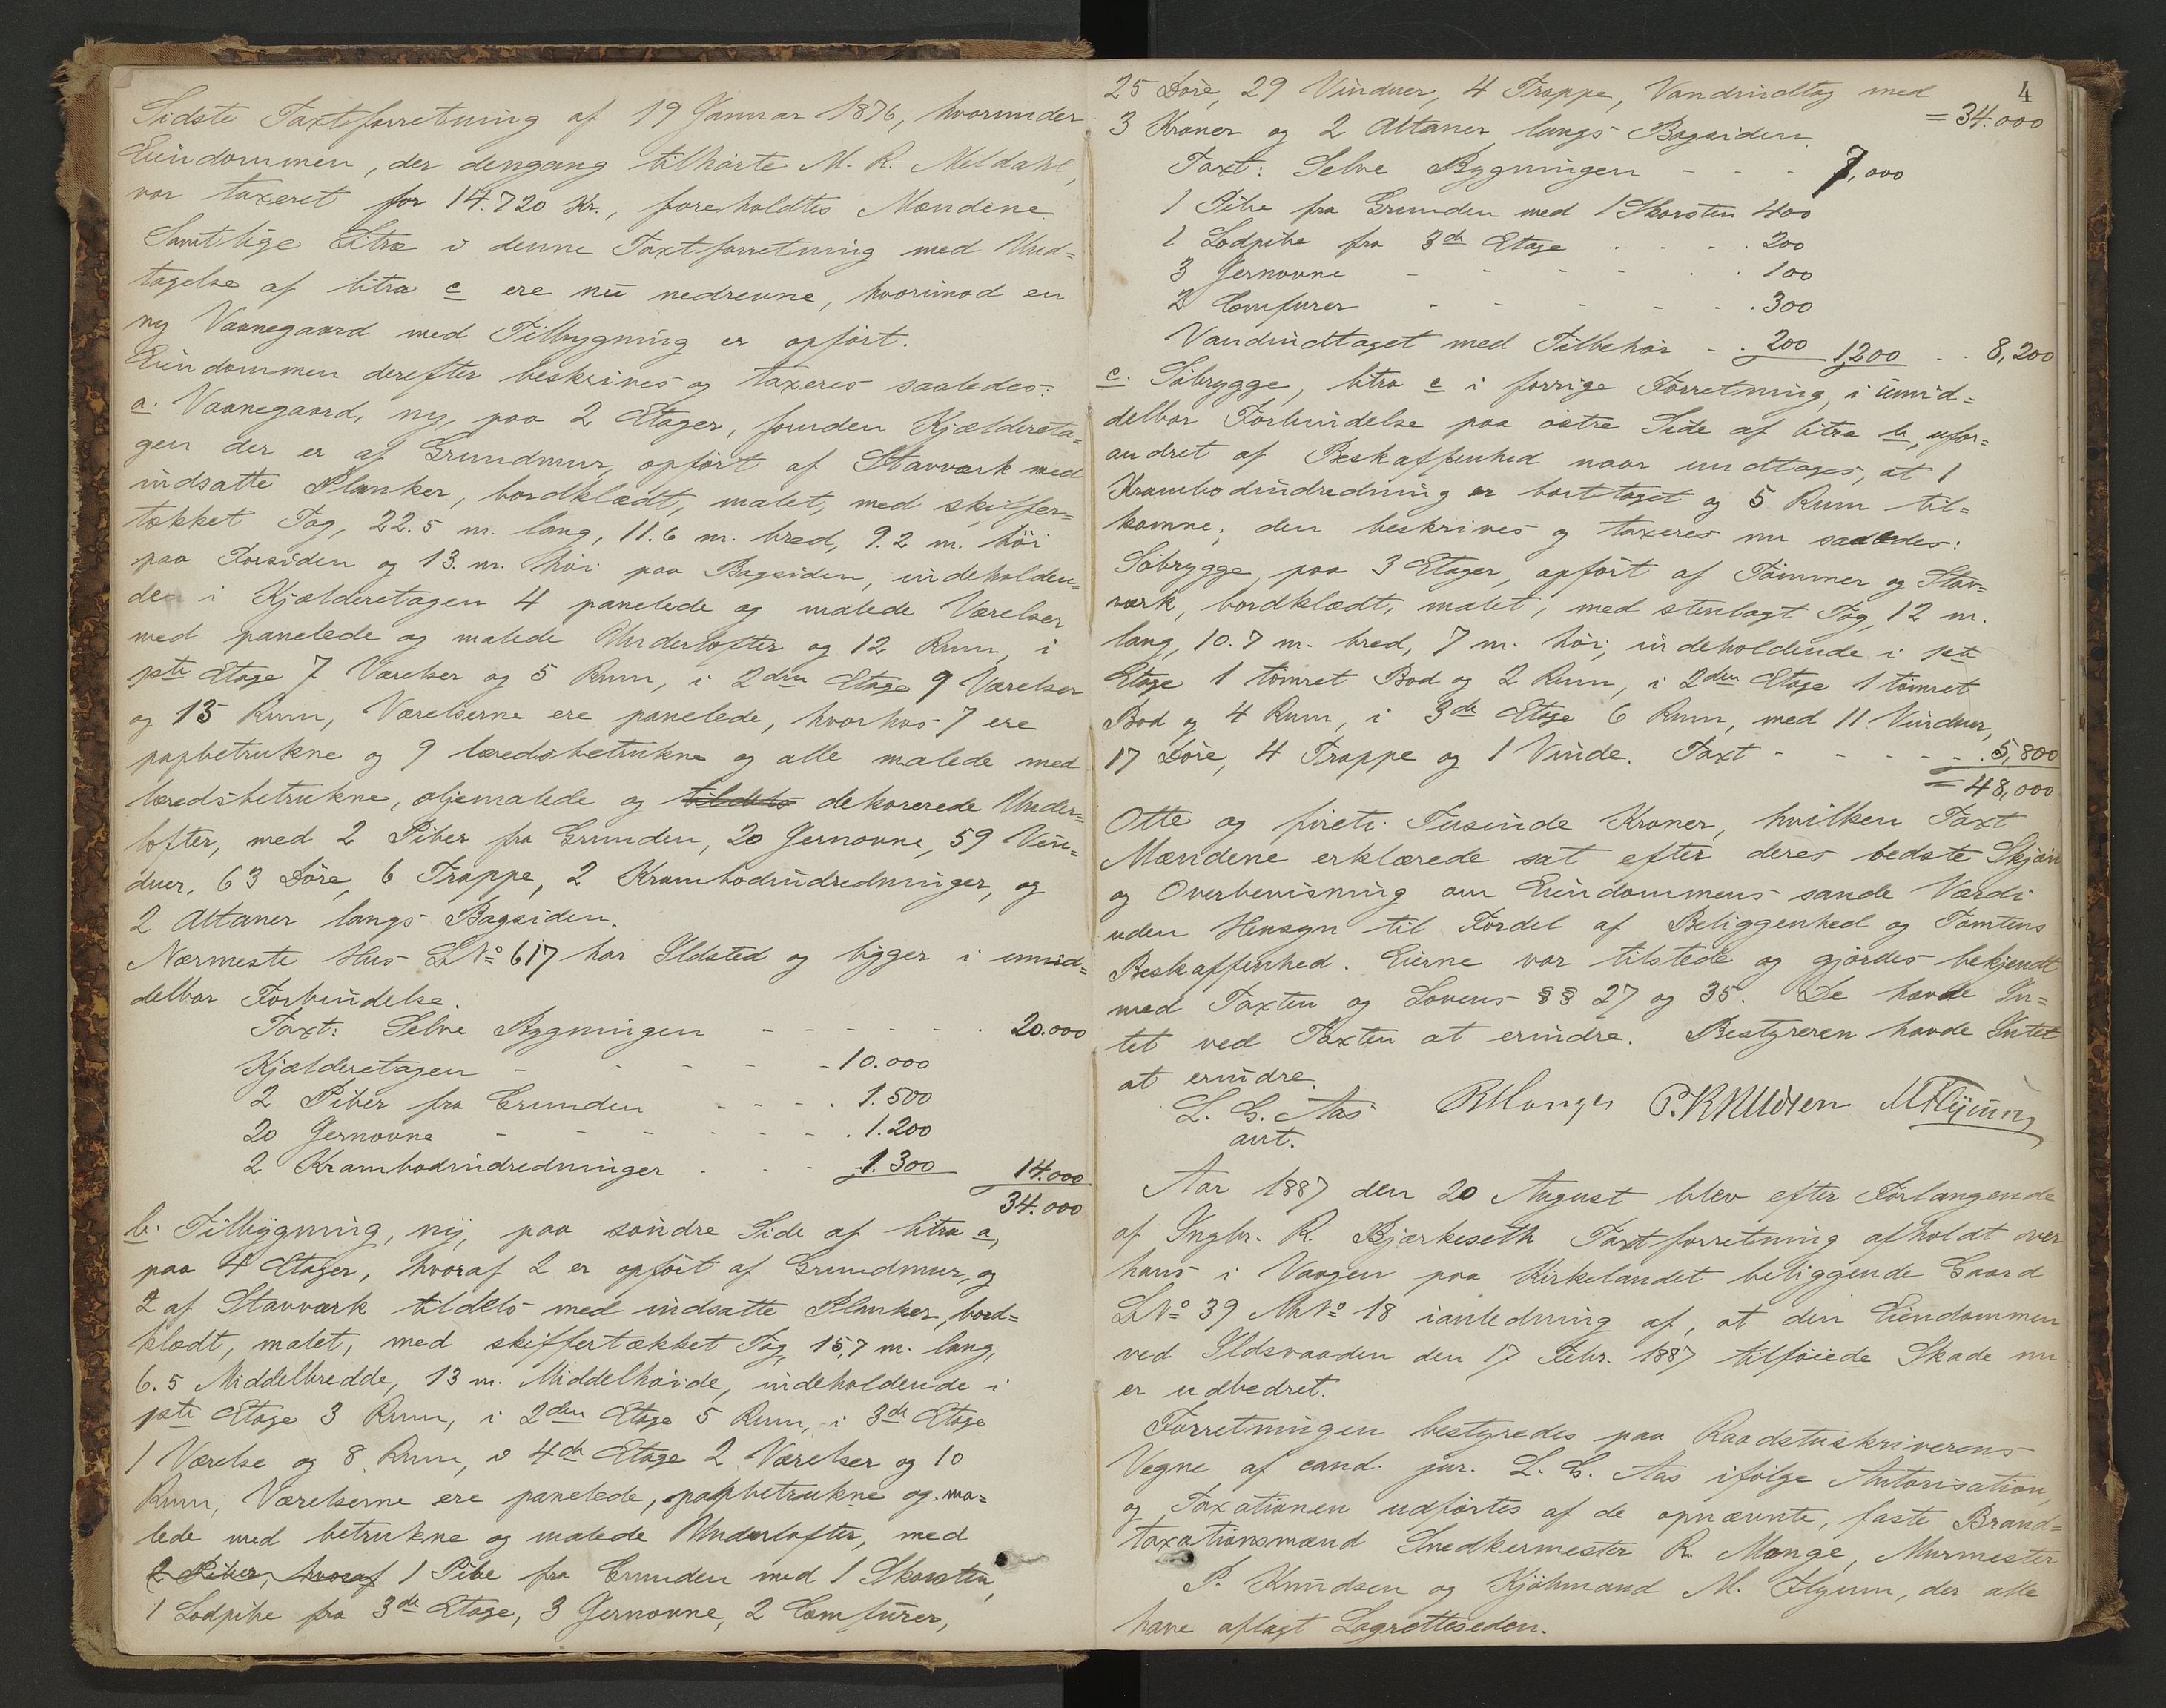 Sidste Taxtforretning af 19 Januar 1876, hvorunder
Eiendommen, der dengang tilhørte M. R. Meldahl,
var taxeret for 14.720 Kr., foreholdtes Mændene.
Samtlige Litra i denne Taxtforretning med Und-
tagelse af litra c ere nu nedrevne, hvorimod en
ny Vaanegaard med Tilbygning er opført.
Eiendommen derefter beskrives og taxeres saaledes:
a. Vaanegaard, ny, paa 2 Etager, foruden Kjældereta-
gen der er af Grundmur, opført af Stavværk med
indsatte Planker, bordklædt, malet, med skiffer-
tækket Tag, 22.5 m. lang, 11.6 m. bred, 9.2 m. høi
paa Forsiden og 13. m. høi paa Bagsiden, indeholden-
de i Kjælderetagen 4 panelede og malede Værelser
med panelede og malede Underlofter og 12 Rum, i
1ste Etage 7 Værelser og 5 Rum, i 2den Etage 9 Værelser
og 15 Rum, Værelserne ere panelede, hvorhos 7 ere
papbetrukne og 9 læredsbetrukne og alle malede med
læredsbetrukne, oljemalede og tildels dekorerede Under-
lofter, med 2 Piber fra Grunden, 20 Jernovne, 59 Vin-
duer, 63 Døre, 6 Trappe, 2 Krambodindredninger, og
2 Altaner langs Bagsiden.
Nærmeste Hus LNo 617 har Ildsted og ligger i umid-
delbar Forbindelse.
Taxt: Selve Bygningen - - - - - - 20.000
Kjælderetagen - - - - - 10.000
2 Piber fra Grunden - - - - 1.500
20 Jernovne - - - - - - 1.200
2 Krambodindredninger - - - 1.300 14.000
34.000
b. Tilbygning, ny, paa søndre Side af litra a,
paa 4 Etager, hvoraf 2 er opført af Grundmur, og
2 af Stavværk tildels med indsatte Planker, bord-
klædt, malet, med skiffertækket Tag, 15,7 m. lang,
6.5 Middelbredde, 13 m. Middelhøide, indeholdende i
1ste Etage 3 Rum, i 2den Etage 5 Rum, i 3de Etage
1 Værelse og 8 Rum, i 4de Etage 2 Værelser og 10
Rum, Værelserne ere panelede, papbetrukne og ma-
lede med betrukne og malede Underlofter, med
2 Piber, hvoraf 1 Pibe fra Grunden med 1 Skorsten,
1 Lodpibe fra 3de Etage, 3 Jernovne, 2 Comfurer,
4
25 Døre, 29 Vinduer, 4 Trappe, Vandindtag med
= 34.000
3 Kraner og 2 Altaner langs Bagsiden.
Taxt: Selve Bygningen - - - 7,000
1 Pibe fra Grunden med 1 Skorsten 400
1 Lodpibe fra 3de Etage - - - 200
3 Jernovne - - - - - 100
2 Comfurer - - - - - 300
Vandindtaget med Tilbehør - - 200 1,200 - - 8,200
c. Søbrygge, litra c i forrige Forretning, i umid-
delbar Forbindelse paa østre Side af litra b, ufor-
andret af Beskaffenhed naar undtages, at 1
Krambodindredning er borttaget og 5 Rum til-
komne; den beskrives og taxeres nu saaledes:
Søbrygge, paa 3 Etager, opført af Tømmer og Stav-
værk, bordklædt, malet, med stenlagt Tag, 12 m.
lang, 10.7 m. bred, 7 m. høi, indeholdende i 1ste
Etage 1 tømret Bod og 2 Rum, i 2den Etage 1 tømret
Bod og 4 Rum, i 3de Etage 6 Rum, med 11 Vinduer,
17 Døre, 4 Trappe og 1 Vinde. Taxt - - - - 5,800
= 48,000
Otte og fireti Tusinde Kroner, hvilken Taxt
Mændene erklærede sat efter deres bedste Skjøn
og Overbevisning om Eiendommens sande Værdi
uden Hensyn til Fordel af Beliggenhed og Tomtens
Beskaffenhed. Eierne var tilstede og gjordes bekjendt
med Taxten og Lovens §§ 27 og 35. De havde In-
tet ved Taxten at erindre. Bestyreren havde Intet
at erindre.
L. G. Aas R Monge P. Knudsen M Flyum
aut.
Aar 1887 den 20 August blev efter Forlangende
af Ingbr. R. Bjerkeseth Taxtforretning afholdt over
hans i Vaagen paa Kirkelandet beliggende Gaard
LNo 39 MNo 18 ianledning af, at den Eiendommen
ved Ildsvaaden den 17 Febr. 1887 tilføiede Skade nu
er udbedret.
Forretningen bestyredes paa Raadstuskriverens
Vegne af cand. jur. L. G. Aas ifølge Autorisation,
og Taxationen udførtes af de opnævnte, faste Brand-
taxationsmænd Snedkermester R. Monge, Murmester
P. Knudsen og Kjøbmand M. Flyum, der alle
have aflagt Lagretteseden.